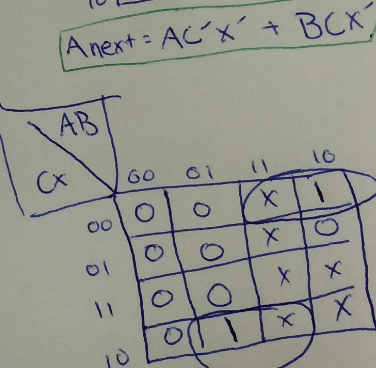 10
Anext = AC'X' + BCX'
AB
CX
00 01 11 10
00 0 0 X 1
01 0 0 X 0
11 0 0 X X
10 0 1 X X